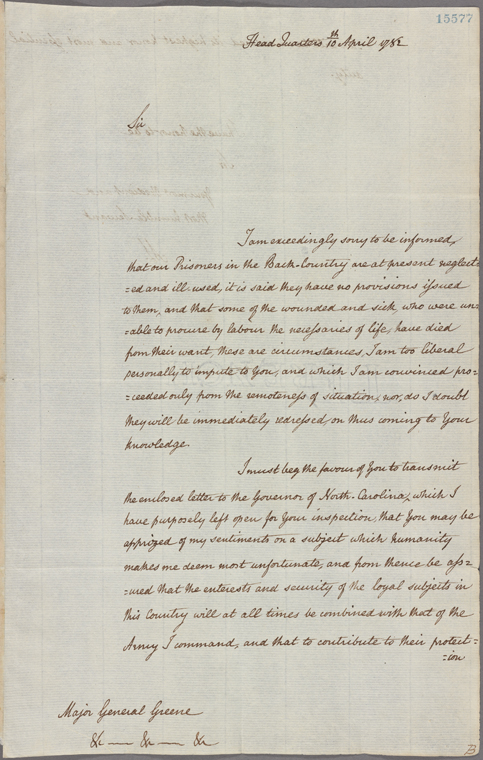 15577
Head Quarters 10th April 1782
Sir
I am exceedingly sorry to be informed,
that our Prisoners in the Back-Country are at present neglect-
=ed and ill used, it is said they have no provisions issued
to them, and that some of the wounded and sick, who were un=
=able to procure by labour the necessaries of life, have died
from their want, these are circumstances, I am too liberal
personally to impute to You, and which I am convinced pro=
=ceeded only from the remoteness of situation, nor, do I doubt
they will be immediately redressed, on thus coming to Your
knowledge.
I must beg the favour of You to transmit
the enclosed letter to the Governor of North-Carolina, which I
have purposely left open for Your inspection, that You may be
apprized of my sentiments on a subject which humanity
makes me deem most unfortunate, and from thence be ass=
=ured that the enterests and security of the loyal subjects in
this Country will at all times be combined with that of the
Army I command, and that to contribute to their protect=
=ion
Major General Greene
&c — &c — &c
B